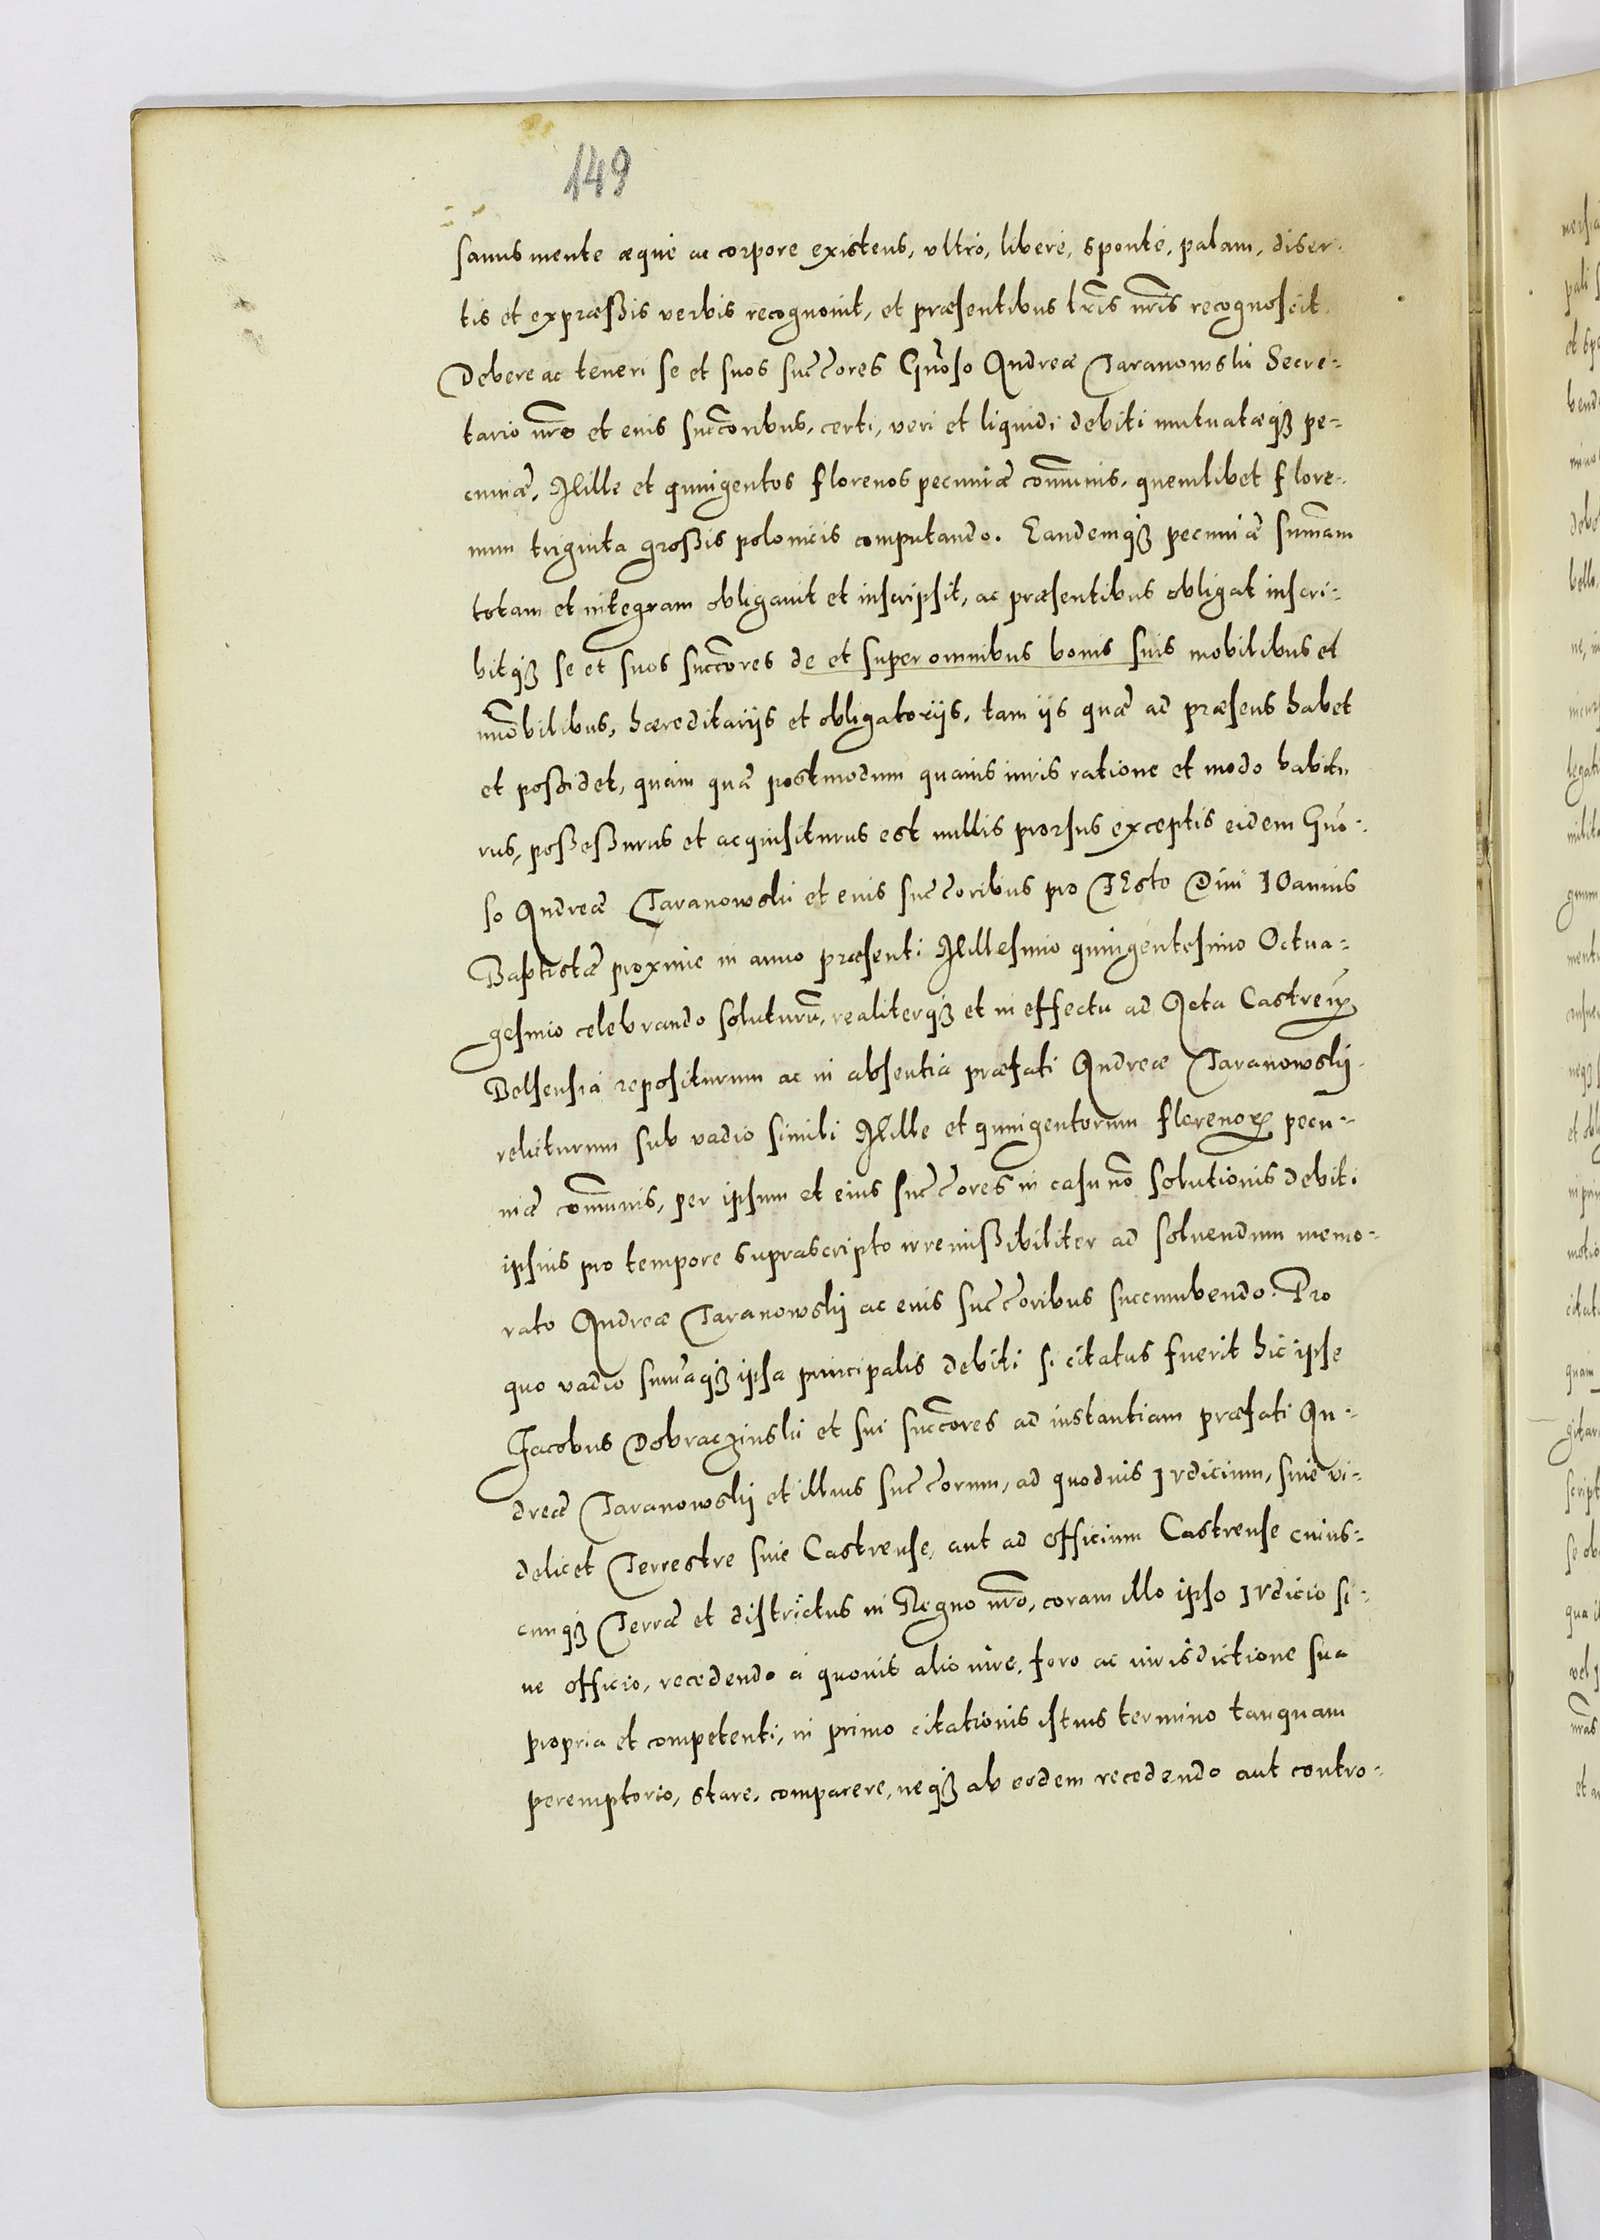 149
sanus mente æque ac corpore existens, ultrò, liberè, spontè, palam, diser-
tis et expræssis verbis recognovit, et præsentibus lr̃is nr̃is recognoscit
Debere ac teneri se et suos succ̃ores Gnõso Andreæ Taranowski Secre-
tario nr̃o et eius succ̃oribus, certi, veri et liquidi debiti mutuatæq3 pe-
cuniæ, Mille et quingentos florenos pecuniæ com̃unis, quemlibet flore-
num triginta grossis polonicis computando. Eandemq3 pecuniæ sum̃am
totam et integram obligavit et inscripsit, ac præsentibus obligat inscri-
bitq3 se et suos succ̃ores de et super omnibus bonis suis mobilibus et
im̃obilibus, hæreditariis et obligatoriis, tam iis quæ ad præsens habet
et possidet, quàm quæ postmodum quavis iuris ratione et modo habitu
rus, possessurus et acquisiturus est nullis prorsus exceptis eidem Gnõ-
so Andreæ Taranowski et eius succ̃oribus pro FEsto Diui IOannis
Baptistæ proximè in anno præsenti Millesimo quingentesimo Octua-
gesimo celebrando soluturũ, realiterq3 et in effectu ad Acta Castren̄
Belsensia repositurum ac in absentia præfati Andreæ Taranowskij
relicturum sub vadio simili Mille et quingentorum florenoꝝ pecu-
niæ com̃unis, per ipsum et eius succ̃ores in casu nõ solutionis debiti
ipsius pro tempore suprascripto irremissibiliter ad solvendum memo-
rato Andreæ Taranowskij ac eius succ̃oribus succumbendo. Pro
quo vadio sum̃aq3 ipsa principalis debiti si citatus fuerit hic ipse
Jacobus Dobraczinski et sui succ̃ores ad instantiam præfati An-
dreæ Taranowskij et illius succ̃orum, ad quodvis IVdicium, sive vi-
delicet Terrestre sive Castrense, aut ad officium Castrense cuius-
cunq3 Terræ et districtus in Regno nr̃o, coram illo ipso IVdicio si-
ve officio, recedendo à quovis alio iure, foro ac iurisdictione sua
propria et competenti, in primo citationis istius termino tanquam
peremptorio, stare, comparere, neq3 ab eodem recedendo aut contro-